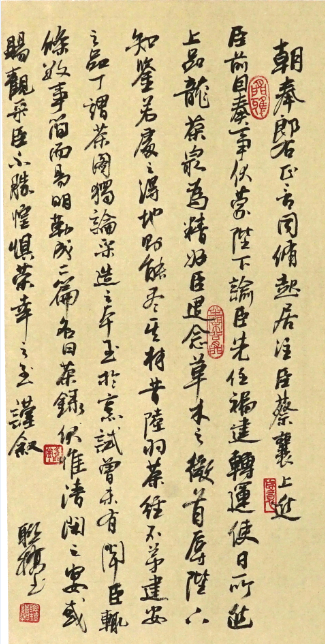 朝奉郎右正言同脩起居注臣蔡襄上進
臣前因奏事伏蒙陛下諭臣先任福建轉運使日所進
上品龍茶最為精好臣退念草木之微首辱陛下
知鑒若處之得地則能尽其材昔陸羽茶经不第建安
之品丁謂茶圖獨論采造之本至於烹試曾未有聞臣輒
條数事簡而易明勒成二篇名曰茶録伏惟清閑之宴或
賜觀采臣不勝惶惧榮幸之至謹叙